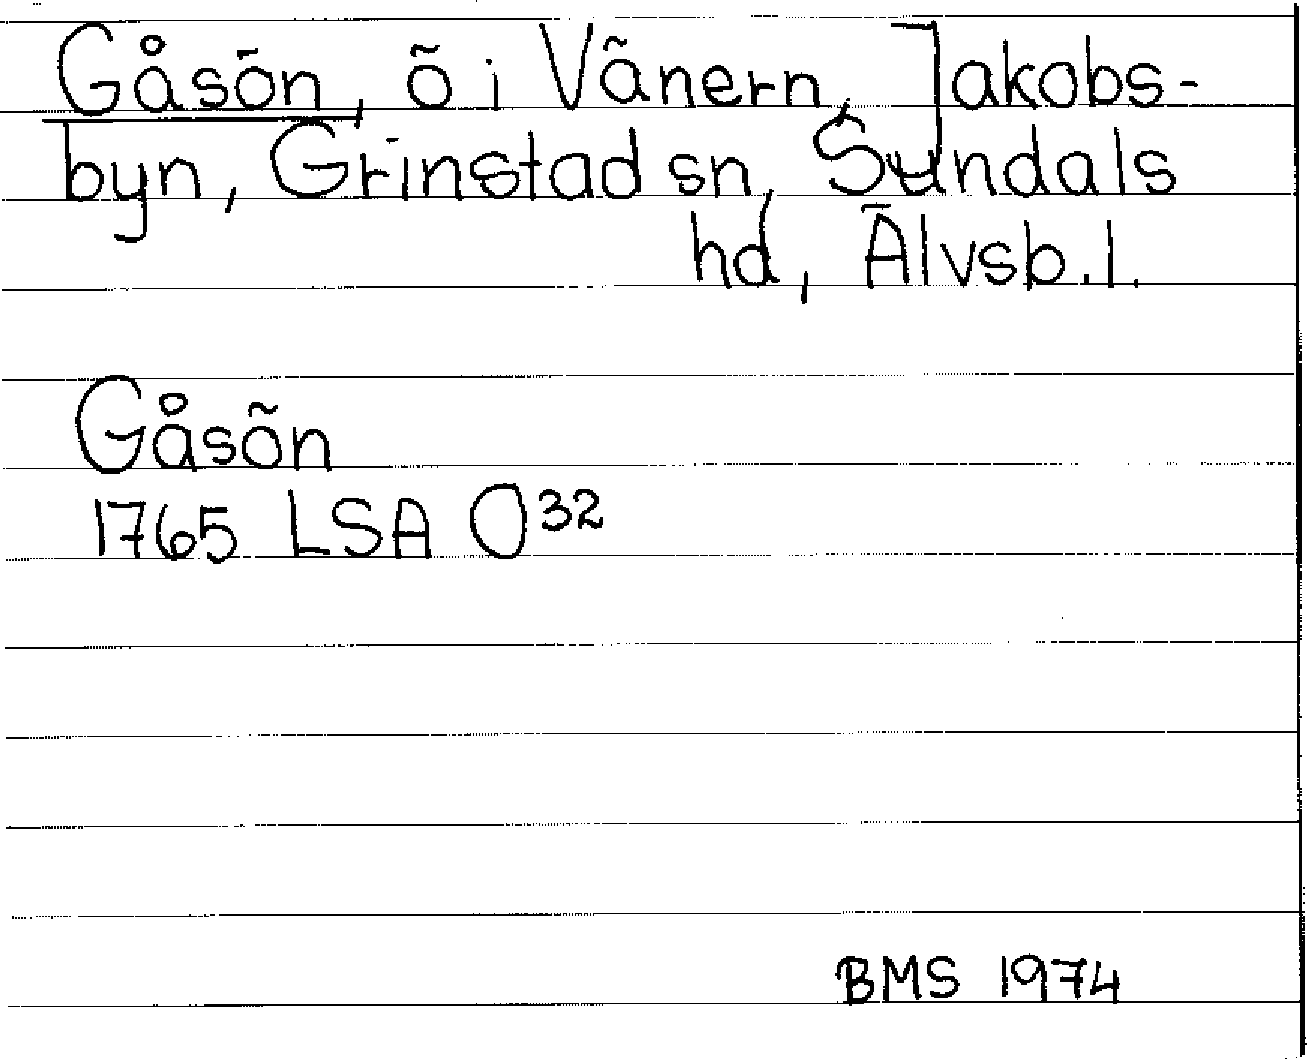 Gåsön, ö i Vänern, Jakobs-
byn, Grinstad sn, Sundals
hd, Älvsb. l.
Gåsön
1765 LSA O32
BMS 1974